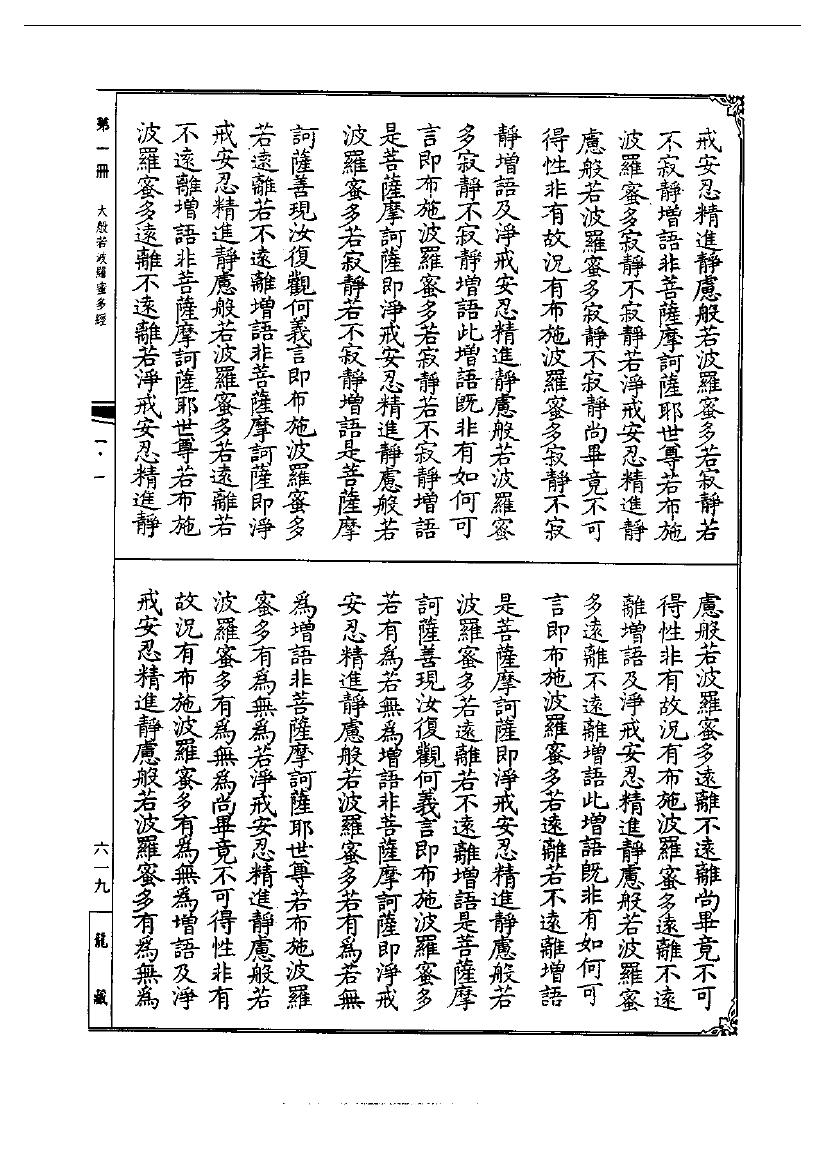 戒安忍精進靜慮般若波羅蜜多若寂靜若
不寂靜增語非菩薩摩訶薩耶世尊若布施
波羅蜜多寂靜不寂靜若淨戒安忍精進靜
慮般若波羅蜜多寂靜不寂靜尚畢竟不可
得性非有故況有布施波羅蜜多寂靜不寂
靜增語及淨戒安忍精進靜慮般若波羅蜜
多寂靜不寂靜增語此增語既非有如何可
言即布施波羅蜜多若寂靜若不寂靜增語
是菩薩摩訶薩即淨戒安忍精進靜慮般若
波羅蜜多若寂靜若不寂靜增語是菩薩摩
訶薩善現汝復觀何義言即布施波羅蜜多
若遠離若不遠離增語非菩薩摩訶薩即淨
戒安忍精進靜慮般若波羅蜜多若遠離若
不遠離增語非菩薩摩訶薩耶世尊若布施
波羅蜜多遠離不遠離若淨戒安忍精進靜
慮般若波羅蜜多遠離不遠離尚畢竟不可
得性非有故況有布施波羅蜜多遠離不遠
離增語及淨戒安忍精進靜慮般若波羅蜜
多遠離不遠離增語此增語既非有如何可
言即布施波羅蜜多若遠離若不遠離增語
是菩薩摩訶薩即淨戒安忍精進靜慮般若
波羅蜜多若遠離若不遠離增語是菩薩摩
訶薩善現汝復觀何義言即布施波羅蜜多
若有為若無為增語非菩薩摩訶薩即淨戒
安忍精進靜慮般若波羅蜜多若有為若無
為增語非菩薩摩訶薩耶世尊若布施波羅
蜜多有為無為若淨戒安忍精進靜慮般若
波羅蜜多有為無為尚畢竟不可得性非有
故況有布施波羅蜜多有為無為增語及淨
戒安忍精進靜慮般若波羅蜜多有為無為
第一冊 大般若波羅蜜多經
一·一
六一九
龍藏